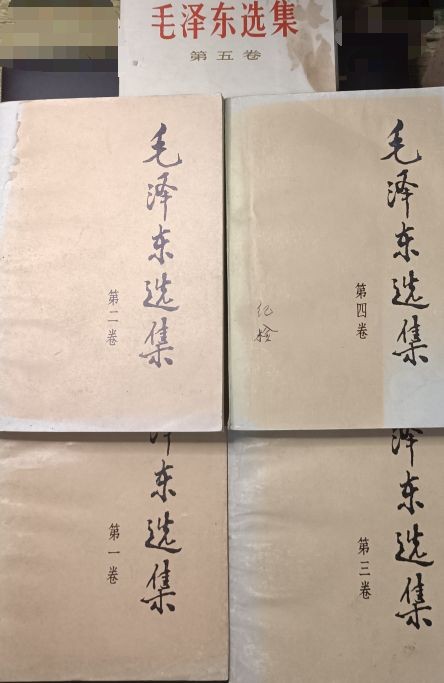 毛泽东选集
第五卷
毛泽东选集
第二卷
毛泽东选集
第四卷
纪检
泽东选集
第一卷
泽东选集
第三卷